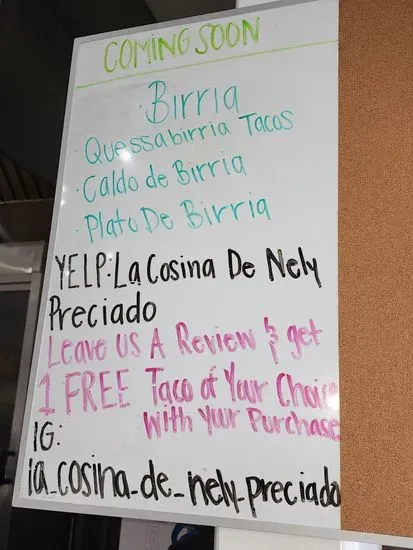 COMING SOON
· Birria
· Quessabirria Tacos
· Caldo de Birria
· Plato De Birria
YELP: La Cosina De Nely
Preciado
Leave Us A Review & get
1 FREE Taco of Your Choice
With Your Purchase
IG:
la_cosina_de_nely_preciado